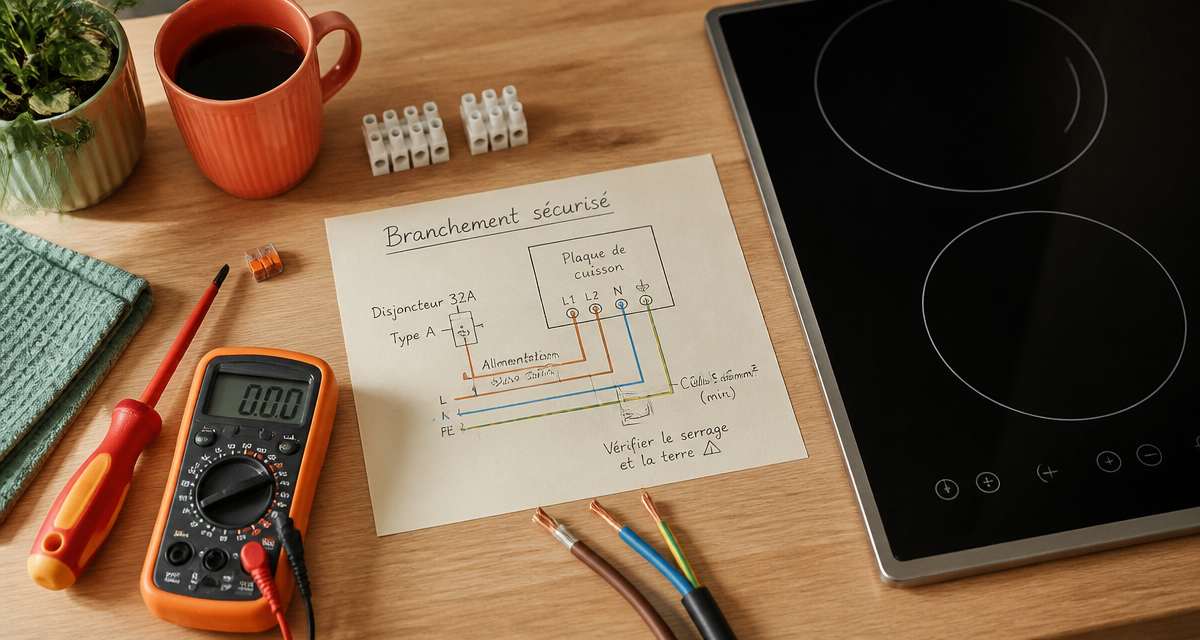 Branchement sécurisé
Plaque de
cuisson
L1 L2 N
Disjoncteur 32A
Type A
Alimentation
L
N
PE
(min)
Vérifier le serrage
et la terre
0.0.0